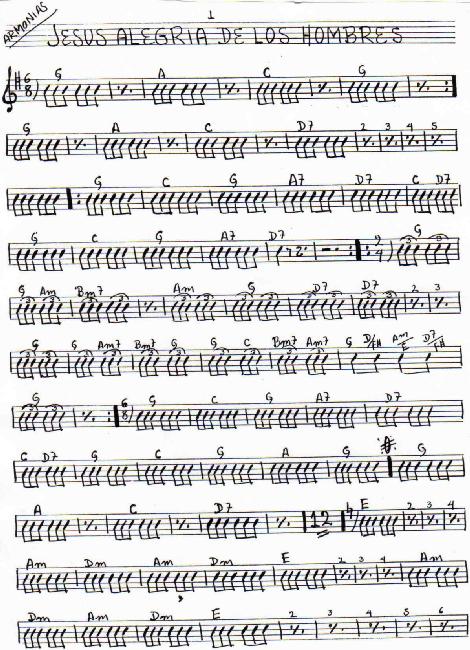 ARMONIAS
1
JESUS ALEGRIA DE LOS HOMBRES
6 8 G A C G
G A C D7 2 3 4 5
G C G A7 D7 C D7
G C G A7 D7 2 2 4 G
G Am Bm7 Am G D7 D7 2 3
G G Am7 Bm7 G G C Bm7 Am7 G D/F# Am/E D7/F#
G 6 8 G C G A7 D7
C D7 G C G A G G
A C D7 12 E 2 3 4
Am Dm Am Dm E 2 3 4 Am
Dm Am Dm E 2 3 4 5 6